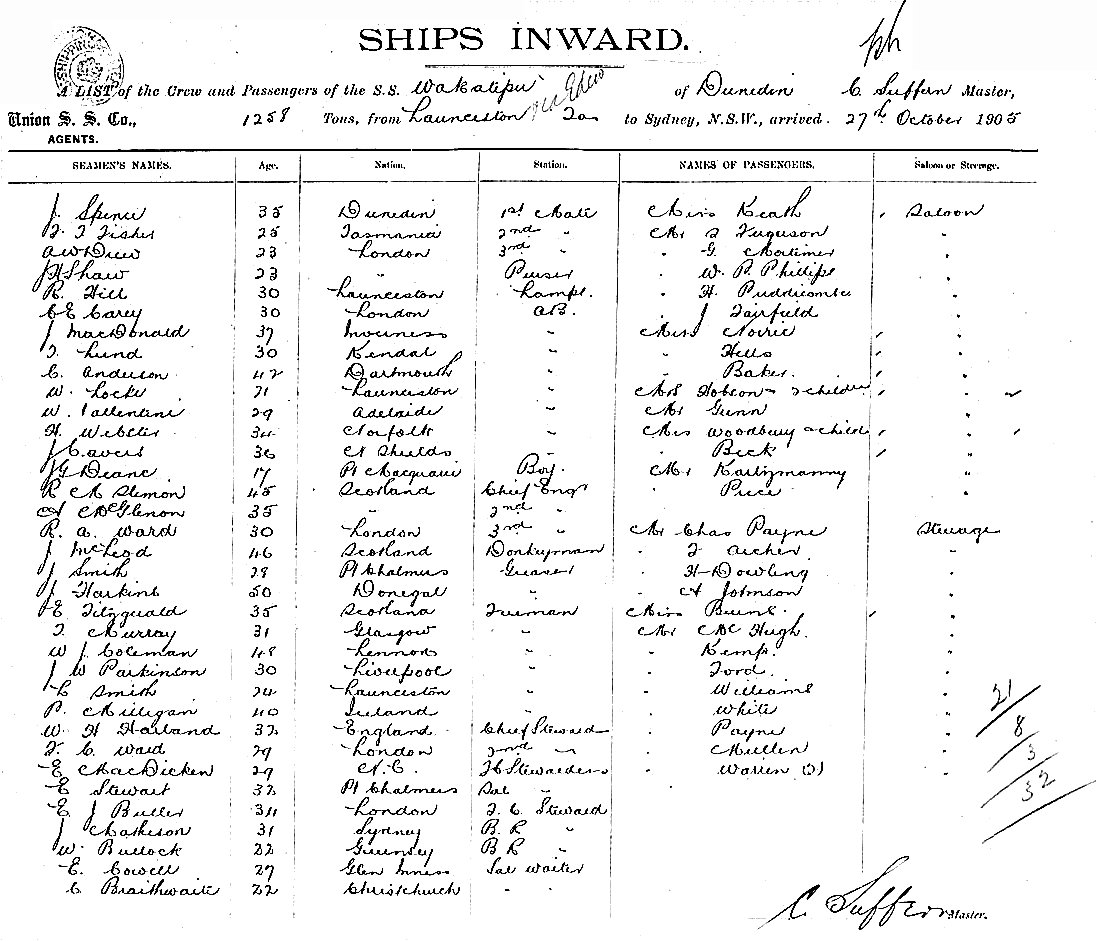 SHIPS INWARD.
A LIST of the Crew and Passengers of the S.S. Wakatipu of Dunedin C Suffern Master,
Union S. S. Co., 1258 Tons, from Launceston Tas to Sydney, N.S.W., arrived 27th October 1905
AGENTS.
SEAMEN'S NAMES. Age. Nation. Station. NAMES OF PASSENGERS. Saloon or Steerage.
J. Spence 35 Dunedin 1st Mate Miss Heath Saloon
F. T Fisher 25 Tasmania 2nd " Mr Ferguson "
A W Drew 23 London 3rd " " G. Mortimer "
J H Shaw 23 " Purser " W. P. Phillips "
R. Hill 30 Launceston Lamps. " H. Puddicombe "
C E Carey 30 London A.B. " J Fairfield "
J MacDonald 37 Inverness " Miss Norrie "
T. Lund 30 Kendal " " Hills "
C. Anderson 42 Dartmouth " " Baker "
W. Locke 21 Launceston " Mrs Hobson & 2 children "
W. Tallentire 29 Adelaide " Mr Gunn "
H. Webster 34 Norfolk " Mrs Woodbury & child "
J Cavers 36 N Shields " " Beck "
J G Deane 17 Pt Macquarie Boy. Mr "
R M Slemon 45 Scotland Chief Engr " Price "
A McGlenon 35 " 2nd "
R. A. Ward 30 London 3rd " Mr Chas Payne Steerage
J McLeod 46 Scotland Donkeyman " F Archer "
J Smith 28 Pt Chalmers Greaser " H Dowling "
J Harkins 50 Donegal " " A Johnson "
E Fitzgerald 35 Scotland Fireman Miss Burns. "
T. Murray 31 Glasgow " Mr McHugh. "
W J. Coleman 48 Lennox " " Kemp. "
J W Parkinson 30 Liverpool " " Ford. "
C Smith 24 Launceston " " Williams "
P. Milligan 40 Ireland " " White "
W H Harland 32 England Chief Steward " Payne "
F. C. Ward 29 London 2nd " " Mullen "
E MacDicken 29 N.C. Stewardess " Warren "
E Stewart 32 Pt Chalmers Sal "
E J Butler 34 London F. C. Steward
J Matheson 31 Sydney B. R "
W. Bullock 22 Guernsey B R "
E. Cowell 27 Glen Inness Sal Waiter
C Braithwaite 22 Christchurch " "
21
8
3
32
C. Suffern Master.